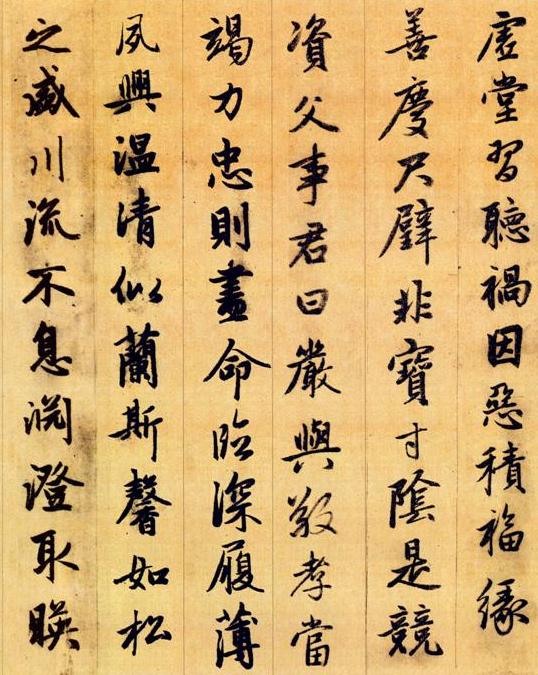 虛堂習聽禍因惡積福緣
善慶尺璧非寶寸陰是競
資父事君曰嚴與敬孝當
竭力忠則盡命臨深履薄
夙興温清似蘭斯馨如松
之盛川流不息淵澄取暎